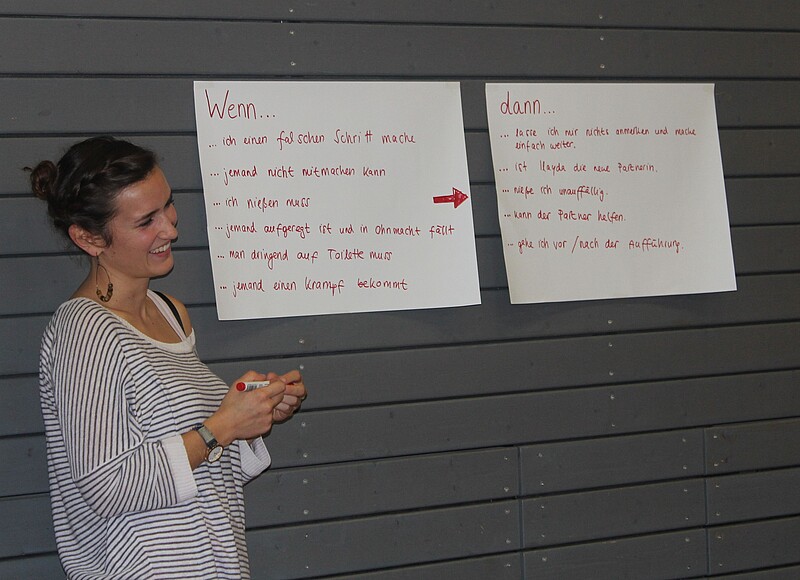 Wenn...
... ich einen falschen Schritt mache
... jemand nicht mitmachen kann
... ich nießen muss
... jemand aufgeregt ist und in Ohnmacht fällt
... man dringend auf Toilette muss
... jemand einen Krampf bekommt
dann...
... lasse ich mir nichts anmerken und mache
einfach weiter.
... ist Ilayda die neue Partnerin.
... nieße ich unauffällig.
... kann der Partner helfen.
... gehe ich vor / nach der Aufführung.